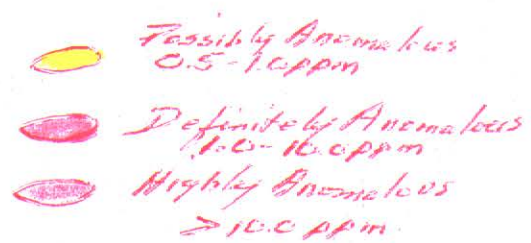 Possibly Anomalous
0.5-1.0ppm
Definitely Anomalous
1.0-10.0ppm
Highly Anomalous
>10.0 ppm